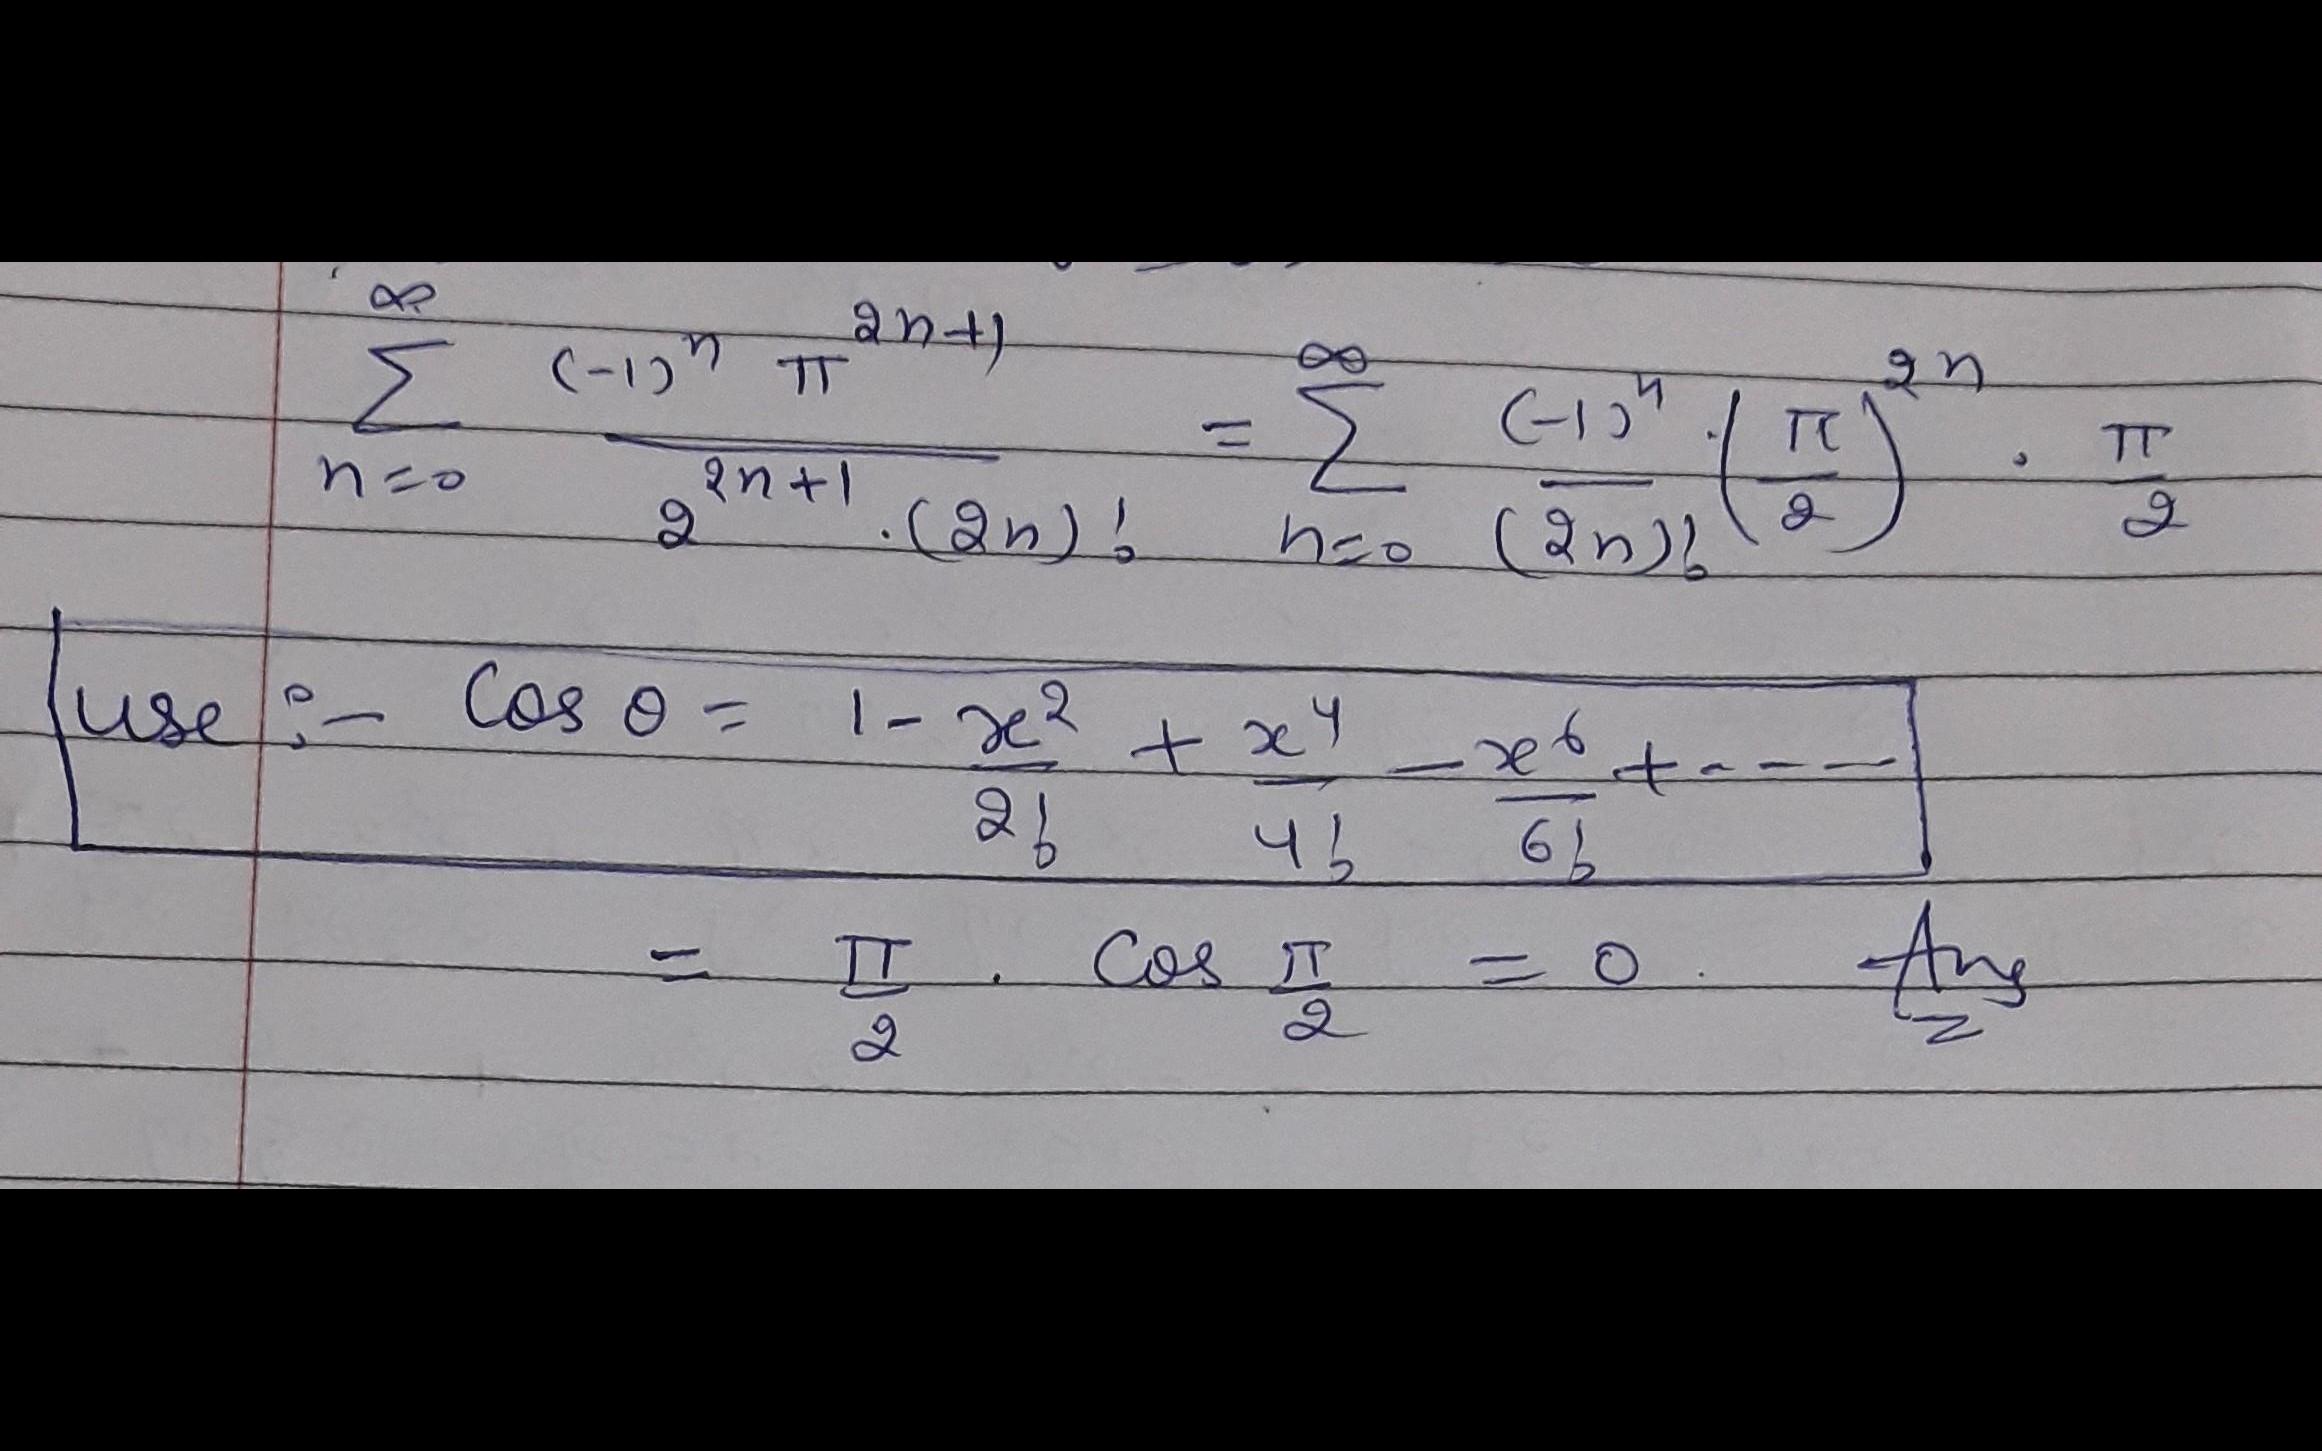 ∞ ∑ n=0 (-1)^n π^(2n+1) / 2^(2n+1) · (2n)! = ∞ ∑ n=0 (-1)^n / (2n)! · (π/2)^(2n) · π/2
use :- Cos θ = 1 - x²/2! + x⁴/4! - x⁶/6! + ----
= π/2 . Cos π/2 = 0 . Ans